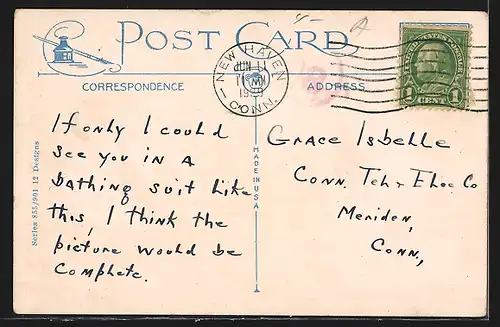 POST CARD
CORRESPONDENCE
ADDRESS
NEW HAVEN
JUN 11
CONN.
UNITED STATES POSTAGE
1 CENT 1
If only I could
see you in a
bathing suit like
this, I think the
picture would be
complete.
Grace Isbelle
Conn. Teh + Elec Co
Meriden,
Conn,
MADE IN U.S.A.
Series 835/901 12 Designs